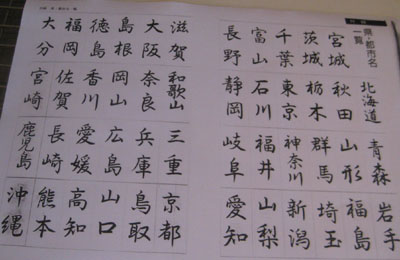 県・都市名
一覧
北海道 青森 岩手
宮城 秋田 山形 福島
茨城 栃木 群馬 埼玉
千葉 東京 神奈川 新潟
富山 石川 福井 山梨
長野 静岡 岐阜 愛知
滋賀 和歌山 三重 京都
大阪 奈良 兵庫 鳥取
島根 岡山 広島 山口
徳島 香川 愛媛 高知
福岡 佐賀 長崎 熊本
大分 宮崎 鹿児島 沖縄